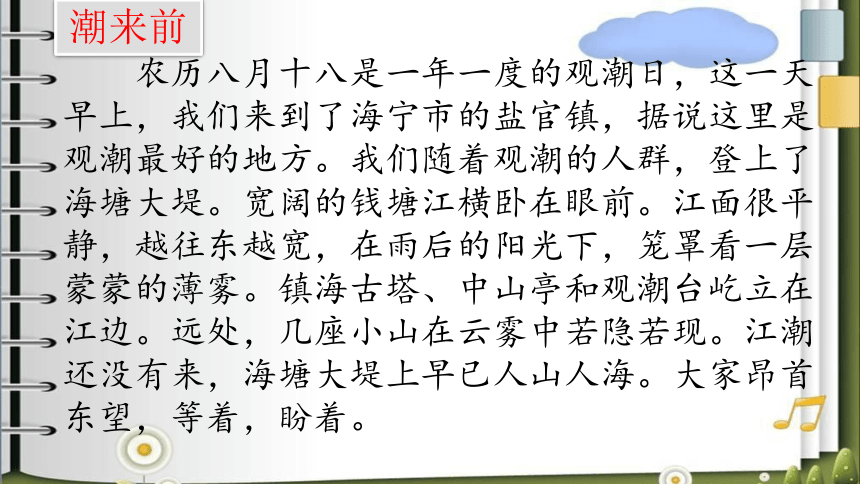 潮来前
农历八月十八是一年一度的观潮日，这一天
早上，我们来到了海宁市的盐官镇，据说这里是
观潮最好的地方。我们随着观潮的人群，登上了
海塘大堤。宽阔的钱塘江横卧在眼前。江面很平
静，越往东越宽，在雨后的阳光下，笼罩看一层
蒙蒙的薄雾。镇海古塔、中山亭和观潮台屹立在
江边。远处，几座小山在云雾中若隐若现。江潮
还没有来，海塘大堤上早已人山人海。大家昂首
东望，等着，盼着。